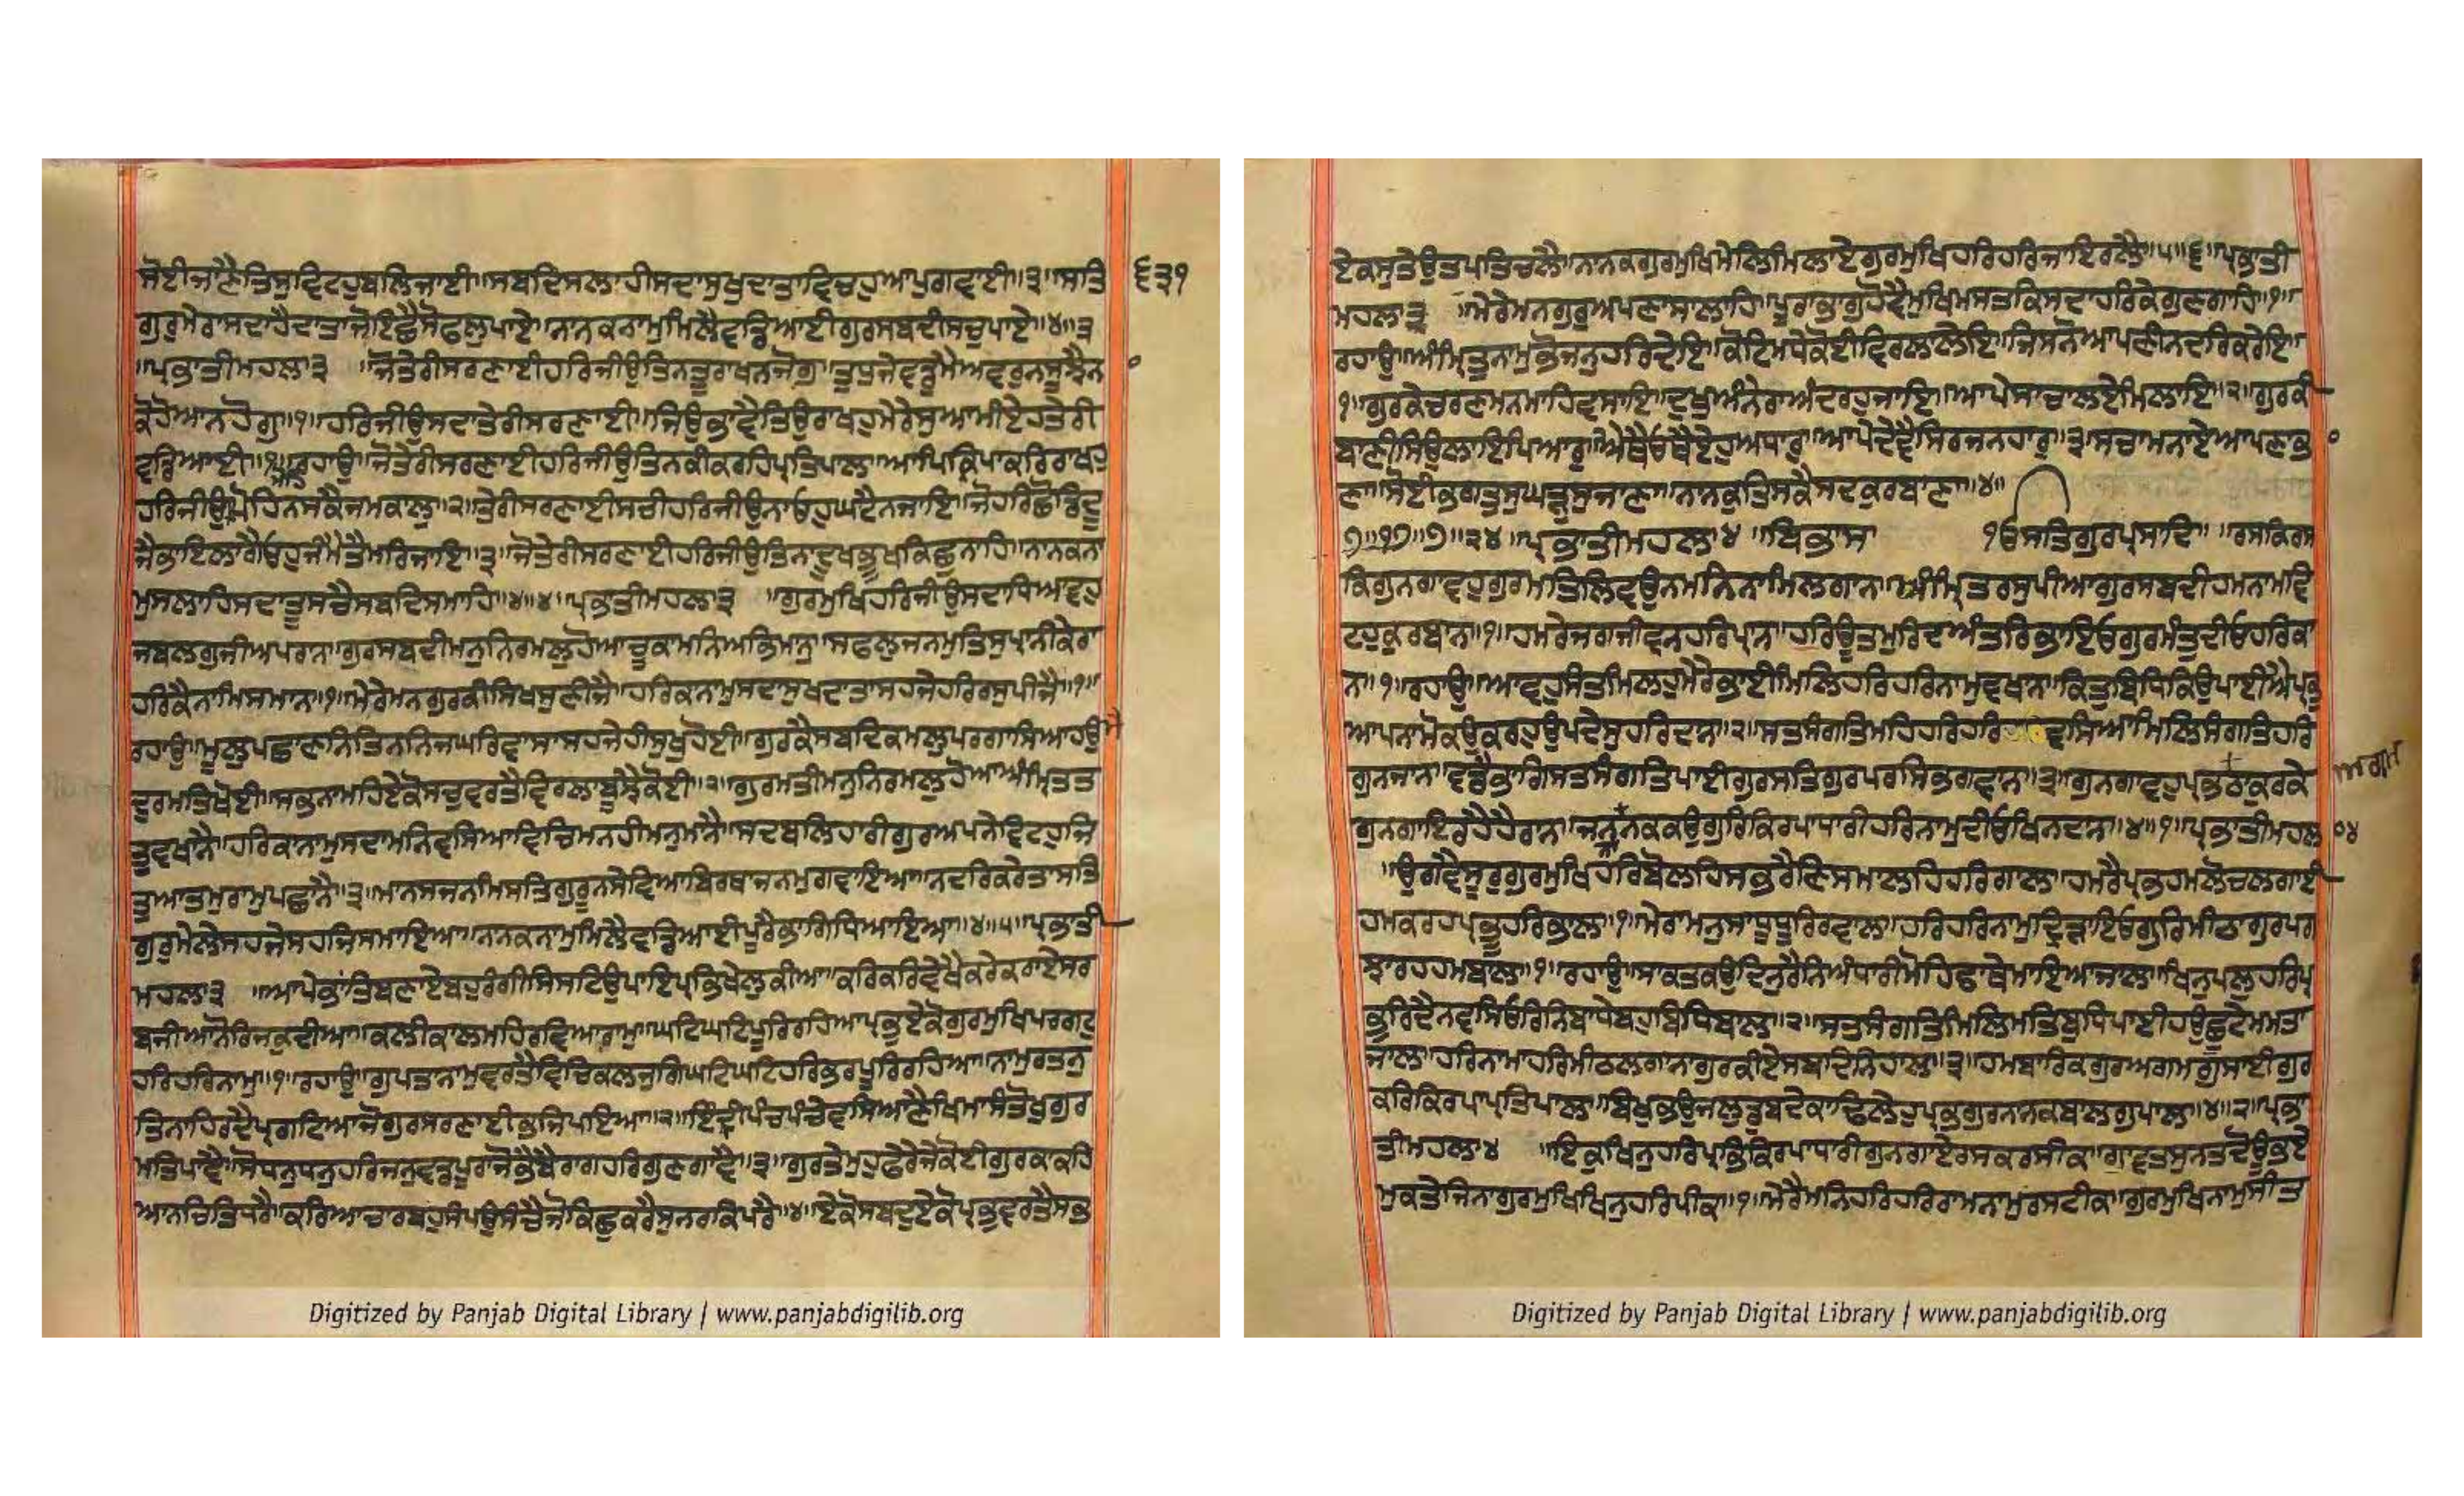 ਸੋਈਜਣੈਤਿਸੁਵਿਟਹੁਬਲਿਜਾਈ॥ਸਬਦਿਸਲਾਹੀਸਦਾਸੁਖਦਾਤਾਵਿਚਹੁਆਪੁਗਵਾਈ॥੩॥ਸਤਿ
੬੩੧
ਗੁਰੁਮੇਰਾਸਦਾਹੈਦਾਤਾਜੋਇਛੈਸੋਫਲੁਪਾਏ॥ਨਾਨਕਨਾਮੁਮਿਲੈਵਡਿਆਈਗੁਰਸਬਦੀਸਚੁਪਾਏ॥੪॥੩
॥ਪ੍ਰਭਾਤੀਮਹਲਾ੩ ॥ਜੋਤੇਰੀਸਰਣਾਈਹਰਿਜੀਉਤਿਨਤੂਰਾਖਨਜੋਗੁ॥ਤੁਧੁਜੇਵਡੁਮੈਅਵਰੁਨਸੂਝੈਨ
ਕੋਹੋਆਨਹੋਗੁ॥੧॥ਹਰਿਜੀਉਸਦਾਤੇਰੀਸਰਣਾਈ॥ਜਿਉਭਾਵੈਤਿਉਰਾਖਹੁਮੇਰੇਸੁਆਮੀਏਹਤੇਰੀ
ਵਡਿਆਈ॥੧॥ਰਹਾਉ॥ਜੋਤੇਰੀਸਰਣਾਈਹਰਿਜੀਉਤਿਨਕੀਕਰਹਿਪ੍ਰਤਿਪਾਲਾ॥ਆਪਿਕ੍ਰਿਪਾਕਰਿਰਾਖਹੁ
ਹਰਿਜੀਉਪੋਹਿਨਸਕੈਜਮਕਾਲੁ॥੨॥ਤੇਰੀਸਰਣਾਈਸਚੀਹਰਿਜੀਉਨਾਓਹੁਘਟੈਨਜਾਇ॥ਜੋਹਰਿਛੋਡਿਦੂ
ਜੈਭਾਇਲਾਗੈਓਹੁਜੰਮੈਤੈਮਰਿਜਾਇ॥੩॥ਜੋਤੇਰੀਸਰਣਾਈਹਰਿਜੀਉਤਿਨਾਦੂਖਭੂਖਕਿਛੁਨਾਹਿ॥ਨਾਨਕਨਾ
ਮੁਸਲਾਹਿਸਦਾਤੂਸਚੈਸਬਦਿਸਮਾਹਿ॥੪॥੪॥ਪ੍ਰਭਾਤੀਮਹਲਾ੩ ॥ਗੁਰਮੁਖਿਹਰਿਜੀਉਸਦਾਧਿਆਵਹੁ
ਜਬਲਗੁਜੀਅਪਰਾਨ॥ਗੁਰਸਬਦੀਮਨੁਨਿਰਮਲੁਹੋਆਚੂਕਾਮਨਿਅਭਿਮਾਨੁ॥ਸਫਲੁਜਨਮੁਤਿਸੁਪ੍ਰਾਨੀਕੇਰਾ
ਹਰਿਕੈਨਾਮਿਸਮਾਨ॥੧॥ਮੇਰੇਮਨਗੁਰਕੀਸਿਖਸੁਣੀਜੈ॥ਹਰਿਕਾਨਾਮੁਸਦਾਸੁਖਦਾਤਾਸਹਜੇਹਰਿਰਸੁਪੀਜੈ॥੧॥
ਰਹਾਉ॥ਮੂਲੁਪਛਾਣਨਿਤਿਨਨਿਜਘਰਿਵਾਸਾਸਹਜੇਹੀਸੁਖੁਹੋਈ॥ਗੁਰਕੈਸਬਦਿਕਮਲੁਪਰਗਾਸਿਆਹਉਮੈ
ਦੁਰਮਤਿਖੋਈ॥ਸਭਨਾਮਹਿਏਕੋਸਚੁਵਰਤੈਵਿਰਲਾਬੂਝੈਕੋਈ॥੨॥ਗੁਰਮਤੀਮਨੁਨਿਰਮਲੁਹੋਆਅੰਮ੍ਰਿਤਤ
ਤੁਵਖਾਨੈ॥ਹਰਿਕਾਨਾਮੁਸਦਾਮਨਿਵਸਿਆਵਿਚਿਮਨਹੀਮਨੁਮਾਨੈ॥ਸਦਬਲਿਹਾਰੀਗੁਰਅਪਨੇਵਿਟਹੁਜਿ
ਤੁਆਤਮਰਾਮੁਪਛਾਨੈ॥੩॥ਮਾਨਸਜਨਮਿਸਤਿਗੁਰੂਨਸੇਵਿਆਬਿਰਥਾਜਨਮੁਗਵਾਇਆ॥ਨਦਰਿਕਰੇਤਾਸਤਿ
ਗੁਰੁਮੇਲੇਸਹਜੇਸਹਜਿਸਮਾਇਆ॥ਨਾਨਕਨਾਮੁਮਿਲੈਵਡਿਆਈਪੂਰੈਭਾਗਿਧਿਆਇਆ॥੪॥੫॥ਪ੍ਰਭਾਤੀ
ਮਹਲਾ੩ ॥ਆਪੇਭਾਂਤਿਬਣਾਏਬਹੁਰੰਗੀਸਿਸਟਿਉਪਾਇਪ੍ਰਭਿਖੇਲੁਕੀਆ॥ਕਰਿਕਰਿਵੇਖੈਕਰੇਕਰਾਏਸਰ
ਬਜੀਆਨੋਰਿਜਕੁਦੀਆ॥ਕਲੀਕਾਲਮਹਿਰਵਿਆਰਾਮੁ॥ਘਟਿਘਟਿਪੂਰਿਰਹਿਆਪ੍ਰਭੁਏਕੋਗੁਰਮੁਖਿਪਰਗਟੁ
ਹਰਿਹਰਿਨਾਮੁ॥੧॥ਰਹਾਉ॥ਗੁਪਤਾਨਾਮੁਵਰਤੈਵਿਚਿਕਲਜੁਗਿਘਟਿਘਟਿਹਰਿਭਰਪੂਰਿਰਹਿਆ॥ਨਾਮੁਰਤਨੁ
ਤਿਨਾਹਿਰਦੈਪ੍ਰਗਟਿਆਜੋਗੁਰਸਰਣਾਈਭਜਿਪਇਆ॥੨॥ਇੰਦ੍ਰੀਪੰਚਪੰਚੇਵਸਿਆਣੈਖਿਮਾਸੰਤੋਖੁਗੁਰ
ਮਤਿਪਾਵੈ॥ਸੋਧਨੁਧਨੁਹਰਿਜਨੁਵਡਪੂਰਾਜੋਭੈਬੈਰਾਗਹਰਿਗੁਣਗਾਵੈ॥੩॥ਗੁਰਤੇਮੁਹੁਫੇਰੇਜੇਕੋਈਗੁਰਕਾਕਹਿ
ਆਨਚਿਤਿਧਰੈ॥ਕਰਿਆਚਾਰਬਹੁਸੰਪਉਸੰਚੈਜੋਕਿਛੁਕਰੈਸੁਨਰਕਿਪਰੈ॥੪॥ਏਕੋਸਬਦੁਏਕੋਪ੍ਰਭੁਵਰਤੈਸਭ
ਏਕਸੁਤੇਉਤਪਤਿਚਲੈ॥ਨਾਨਕਗੁਰਮੁਖਿਮੇਲਿਮਿਲਾਏਗੁਰਮੁਖਿਹਰਿਹਰਿਜਾਇਰਲੈ॥੫॥੬॥ਪ੍ਰਭਾਤੀ
ਮਹਲਾ੩ ॥ਮੇਰੇਮਨਗੁਰੁਅਪਣਾਸਾਲਾਹਿ॥ਪੂਰਾਭਾਗੁਹੋਵੈਮੁਖਿਮਸਤਕਿਸਦਾਹਰਿਕੇਗੁਣਗਾਹਿ॥੧॥
ਰਹਾਉ॥ਅੰਮ੍ਰਿਤੁਨਾਮੁਭੋਜਨੁਹਰਿਦੇਇ॥ਕੋਟਿਮਧੇਕੋਈਵਿਰਲਾਲੇਇ॥ਜਿਸਨੋਆਪਣੀਨਦਰਿਕਰੇਇ॥
੧॥ਗੁਰਕੇਚਰਣਮਨਮਾਹਿਵਸਾਇ॥ਦੁਖੁਅੰਨੇਰਾਅੰਦਰਹੁਜਾਇ॥ਆਪੇਸਾਚਾਲਏਮਿਲਾਇ॥੨॥ਗੁਰਕੀ
ਬਾਣੀਸਿਉਲਾਇਪਿਆਰੁ॥ਐਥੈਓਥੈਏਹੁਅਧਾਰੁ॥ਆਪੇਦੇਵੈਸਿਰਜਨਹਾਰੁ॥੩॥ਸਚਾਮਨਾਏਆਪਣਾਭਾ
ਣਾ॥ਸੋਈਭਗਤੁਸੁਘੜੁਸੁਜਾਣਾ॥ਨਾਨਕੁਤਿਸਕੈਸਦਕੁਰਬਾਣਾ॥੪॥
੭॥੧੭॥੭॥੨੪॥ਪ੍ਰਭਾਤੀਮਹਲਾ੪॥ਬਿਭਾਸ ੴਸਤਿਗੁਰਪ੍ਰਸਾਦਿ॥ ॥ਰਸਕਿਰਸ
ਕਿਗੁਨਗਾਵਹੁਗੁਰਮਤਿਲਿਵਉਨਮਨਿਨਾਮਿਲਗਾਨ॥ਅੰਮ੍ਰਿਤਰਸੁਪੀਆਗੁਰਸਬਦੀਹਮਨਾਮਵਿ
ਟਹੁਕੁਰਬਾਨ॥੧॥ਹਮਰੇਜਗਜੀਵਨਹਰਿਪ੍ਰਾਨ॥ਹਰਿਊਤਮੁਰਿਦਅੰਤਰਿਭਾਇਓਗੁਰਮੰਤੁਦੀਓਹਰਿਕਾ
ਨ॥੧॥ਰਹਾਉ॥ਆਵਹੁਸੰਤਮਿਲਹੁਮੇਰੈਭਾਈਮਿਲਿਹਰਿਹਰਿਨਾਮੁਵਖਾਨ॥ਕਿਤੁਬਿਧਿਕਿਉਪਾਈਐਪ੍ਰਭੁ
ਆਪਨਾਮੋਕਉਕਰਹੁਉਪਦੇਸੁਹਰਿਦਾਨ॥੨॥ਸਤਸੰਗਤਿਮਹਿਹਰਿਹਰਿਵਸਿਆਮਿਲਿਸੰਗਤਿਹਰਿ
ਗੁਨਜਾਨ॥ਵਡੈਭਾਗਿਸਤਸੰਗਤਿਪਾਈਗੁਰਸਤਿਗੁਰਪਰਸਿਭਗਵਾਨ॥੩॥ਗੁਨਗਾਵਹੁਪ੍ਰਭਠਾਕੁਰਕੇ
ਅਗਮ
ਗੁਨਗਾਇਰਹੇਹੈਰਾਨ॥ਜਨਨਾਨਕਕਉਗੁਰਿਕਿਰਪਾਧਾਰੀਹਰਿਨਾਮੁਦੀਓਖਿਨਦਾਨ॥੪॥੧॥ਪ੍ਰਭਾਤੀਮਹਲਾ੪
॥ਉਗਵੈਸੂਰੁਗੁਰਮੁਖਿਹਰਿਬੋਲਹਿਸਭਰੈਣਿਸਮਾਲਹਿਹਰਿਗਾਲ॥ਹਮਰੈਪ੍ਰਭਹਮਲੋਚਲਗਾਈ
ਹਮਕਰਹਪ੍ਰਭੂਹਰਿਭਾਲ॥੧॥ਮੇਰਾਮਨੁਸਾਧੂਧੂਰਿਰਵਾਲ॥ਹਰਿਹਰਿਨਾਮੁਦ੍ਰਿੜਾਇਓਗੁਰਿਮੀਠਾਗੁਰਪਗ
ਝਾਰਹਹਮਬਾਲ॥੧॥ਰਹਾਉ॥ਸਾਕਤਕਉਦਿਨੁਰੈਨਿਅੰਧਾਰੀਮੋਹਿਫਾਥੇਮਾਇਆਜਾਲ॥ਖਿਨੁਪਲੁਹਰਿਪ੍ਰ
ਭੁਰਿਦੈਨਵਸਿਓਰਿਨਿਬਾਧੇਬਹੁਬਿਧਿਬਾਲ॥੨॥ਸਤਸੰਗਤਿਮਿਲਿਮਤਿਬੁਧਿਪਾਈਹਉਛੂਟੇਮਮਤਾ
ਜਾਲ॥ਹਰਿਨਾਮਾਹਰਿਮੀਠਲਗਾਨਾਗੁਰਕੀਏਸਬਦਿਨਿਹਾਲ॥੩॥ਹਮਬਾਰਿਕਗੁਰਅਗਮਗੁਸਾਈਗੁਰ
ਕਰਿਕਿਰਪਾਪ੍ਰਤਿਪਾਲ॥ਬਿਖੁਭਉਜਲਡੁਬਦੇਕਾਢਿਲੇਹੁਪ੍ਰਭਗੁਰਨਾਨਕਬਾਲਗੁਪਾਲ॥੪॥੨॥ਪ੍ਰਭਾ
ਤੀਮਹਲਾ੪ ॥ਇਕੁਖਿਨੁਹਰਿਪ੍ਰਭਿਕਿਰਪਾਧਾਰੀਗੁਨਗਾਏਰਸਕਰਸੀਕ॥ਗਾਵਤਸੁਨਤਦੋਊਭਏ
ਮੁਕਤੇਜਿਨਾਗੁਰਮੁਖਿਖਿਨੁਹਰਿਪੀਕ॥੧॥ਮੇਰੈਮਨਿਹਰਿਹਰਿਰਾਮਨਾਮੁਰਸਟੀਕ॥ਗੁਰਮੁਖਿਨਾਮੁਸੀਤ
Digitized by Panjab Digital Library | www.panjabdigilib.org
Digitized by Panjab Digital Library | www.panjabdigilib.org